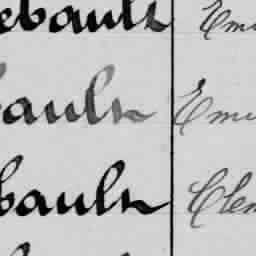 ebault Emi
bault Emi
bault Clem